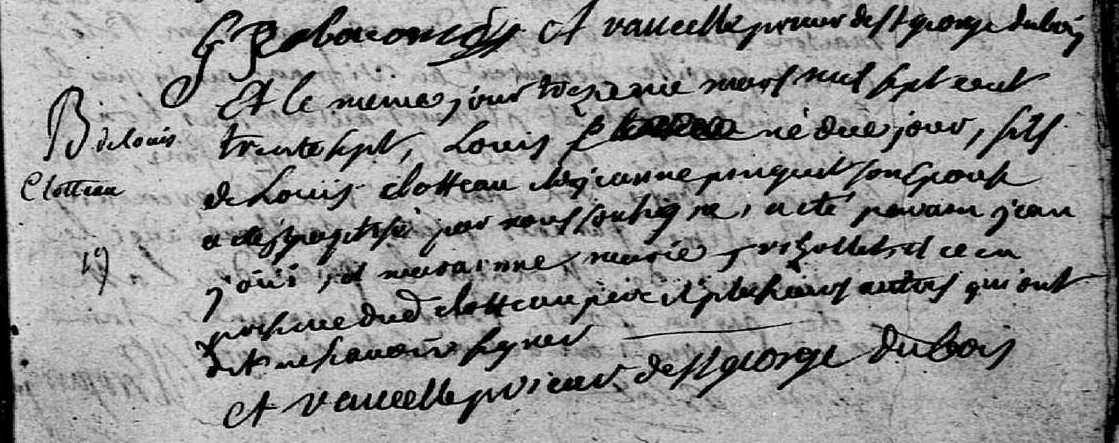 Et vaucelle prieur de St george du bois
B de Louis
Clotteau
19
Et le meme jour treizieme mars mil sept cent
trente sept, Louis né du d jour, fils
de Louis clotteau et de jeanne son Epouse
a été baptisé par nous soubsigné, a été parain jean
et maraine marie et ce en
presence dud clotteau pere et plusieurs autres qui ont
dit ne scavoir signer
Et vaucelle prieur de St george du bois